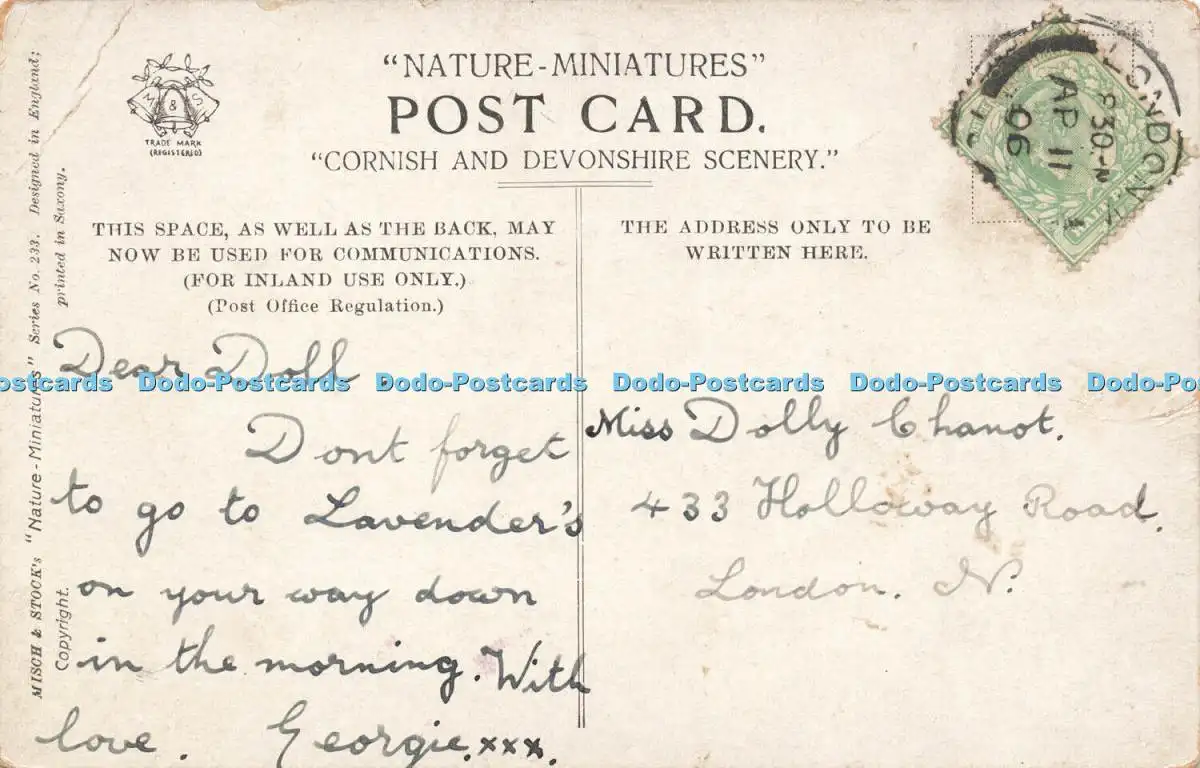 "NATURE-MINIATURES"
POST CARD.
"CORNISH AND DEVONSHIRE SCENERY."
M & S
TRADE MARK
(REGISTERED)
THIS SPACE, AS WELL AS THE BACK, MAY
NOW BE USED FOR COMMUNICATIONS.
(FOR INLAND USE ONLY.)
(Post Office Regulation.)
THE ADDRESS ONLY TO BE
WRITTEN HERE.
LONDON
8 30
AP 11
06
MISCH & STOCK'S "Nature-Miniatures" Series No. 233. Designed in England;
printed in Saxony.
Copyright.
Dear Doll
Dont forget
to go to Lavender's
on your way down
in the morning. With
love. Georgie. xxx.
Miss Dolly Chanot.
433 Holloway Road.
London. N.
ostcards Dodo-Postcards Dodo-Postcards Dodo-Postcards Dodo-Postcards Dodo-Po